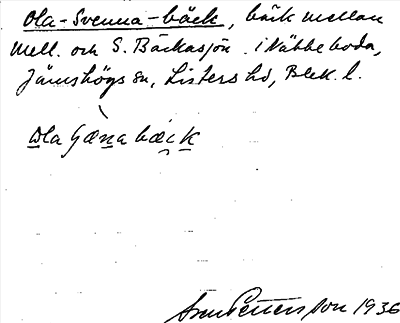 Ola-Svenna-bäck, bäck mellan
Mell. och S. Bäckasjön i Näbbeboda,
Jämshögs sn, Listers hd, Blek. l.
Ola bæck
Sven Pettersson 1936